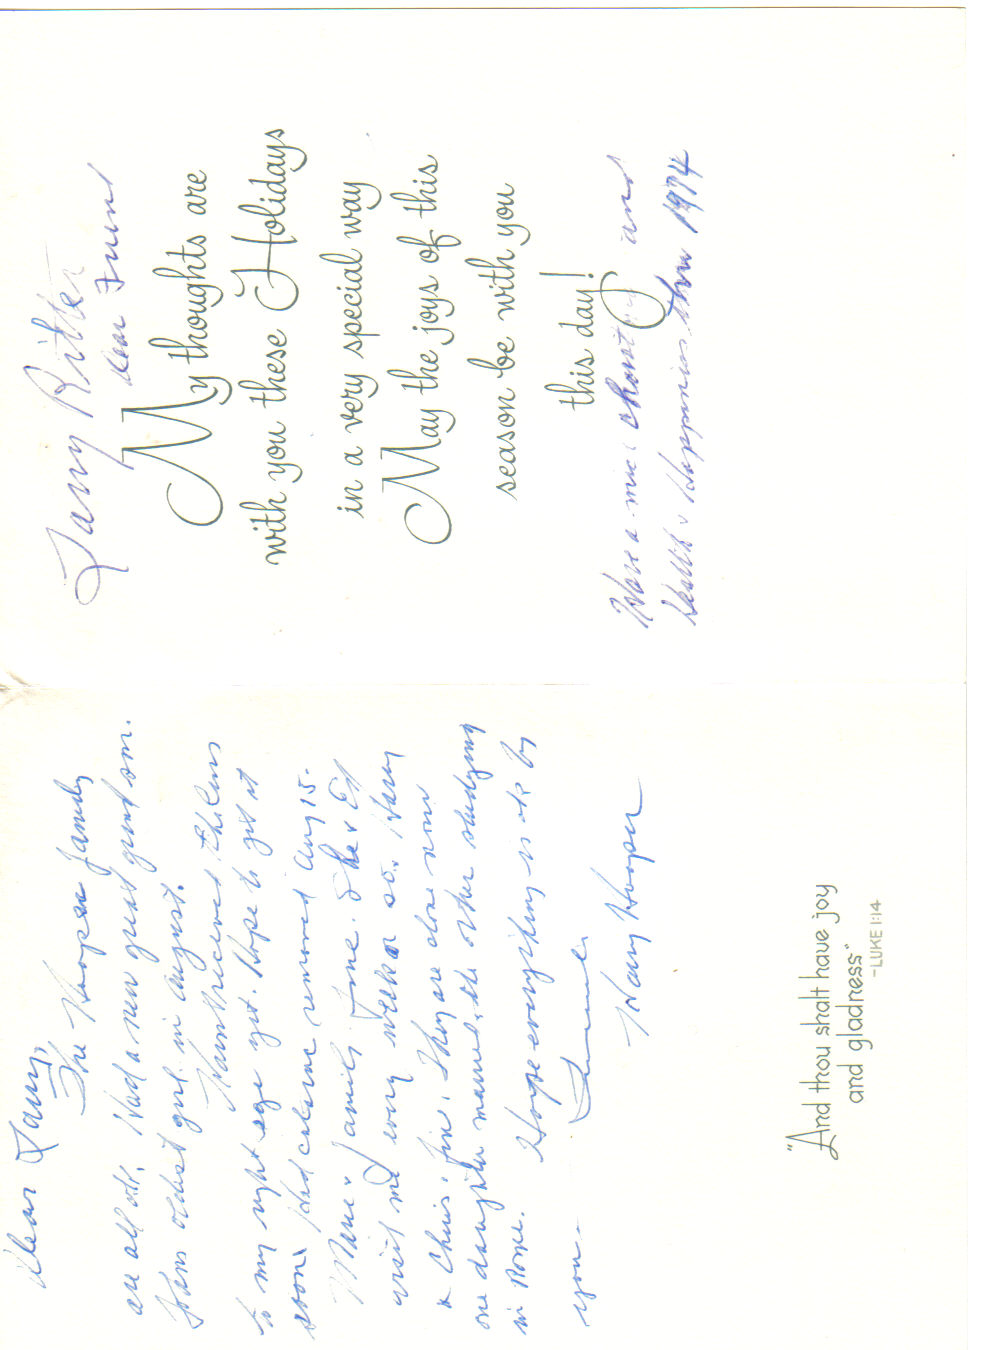 Dear Larry,
The Hooper family
are all ok. Had a new great grand son.
Johns oldest girl in August.
Havnt received the lens
to my right eye yet. Hope to get it
soon. Had cataract removed Aug 15.
Marie & family fine. She & Ed
visit me every week or so. Harry
& Chris fine. They are alone now
one daughter married, the other studying
in Rome.
Hope everything is ok by
you.
Harry Hooper
"And thou shalt have joy
and gladness"
-LUKE 1:14
Larry Ritter
Dear Friend
My thoughts are
with you these Holidays
in a very special way
May the joys of this
season be with you
this day!
Have a and
Health & Happiness thru 1974